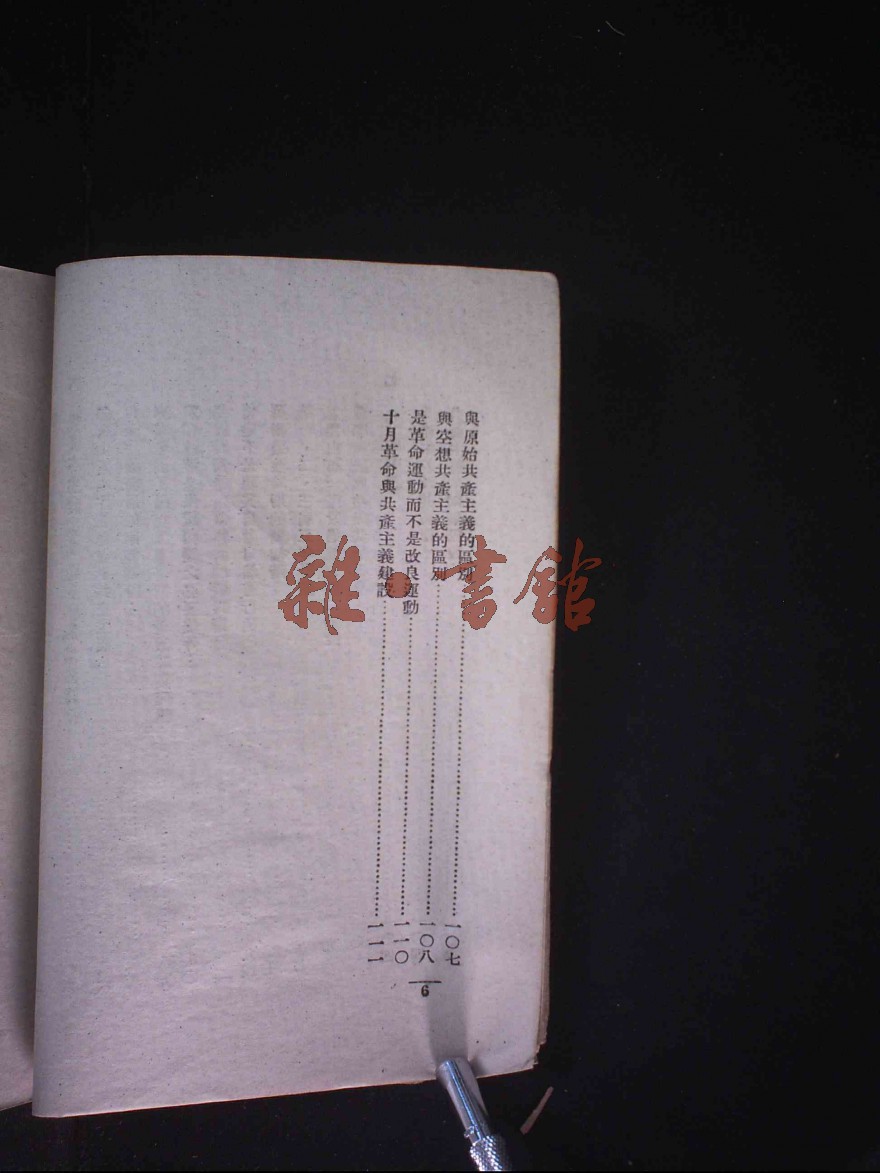 與原始共產主義的區別……………………一〇七
與空想共產主義的區別……………………一〇八
是革命運動而不是改良運動……………………一一〇
十月革命與共產主義建設……………………一一一
6
雜·書館